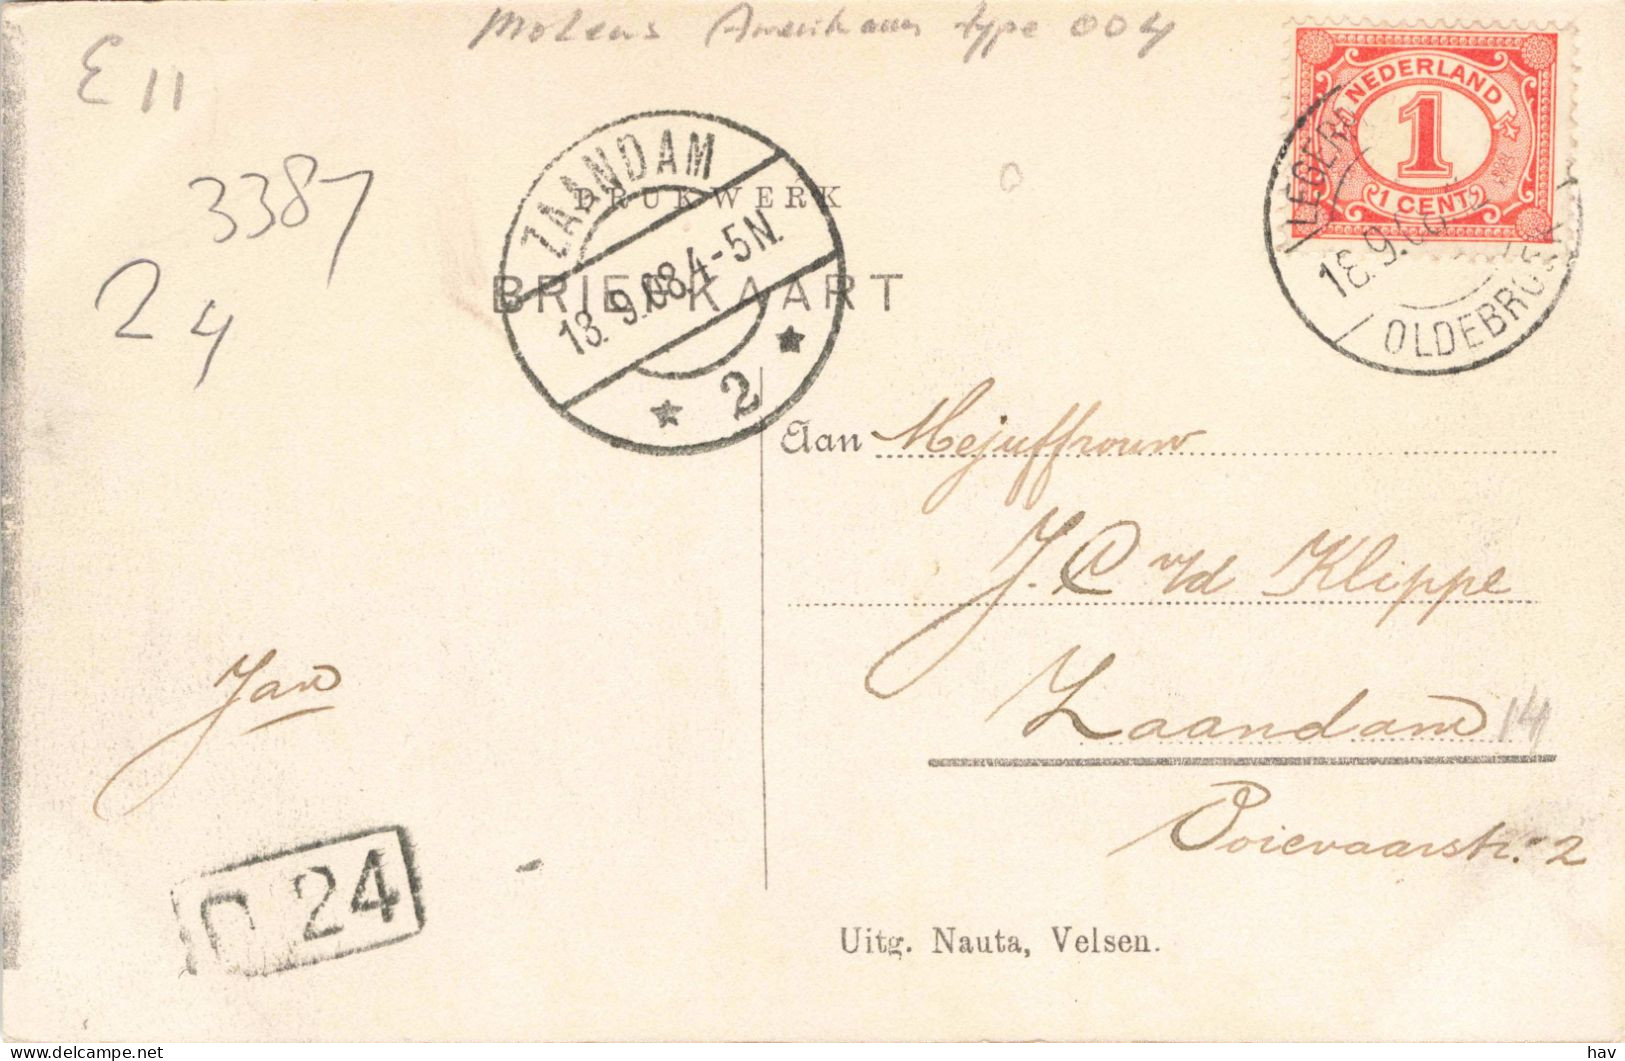 Molens Amerikaans type 004
E 11
3387
2 4
NEDERLAND
1
1 CENT
OLDEBROEK
18.9.08
ZAANDAM
18. 9.08.4-5N.
2
DRUKWERK
BRIEFKAART
Aan Mejuffrouw
J. C v/d Klippe
Zaandam 14
Ooievaarstr. 2
Jan
24
Uitg. Nauta, Velsen.
hav